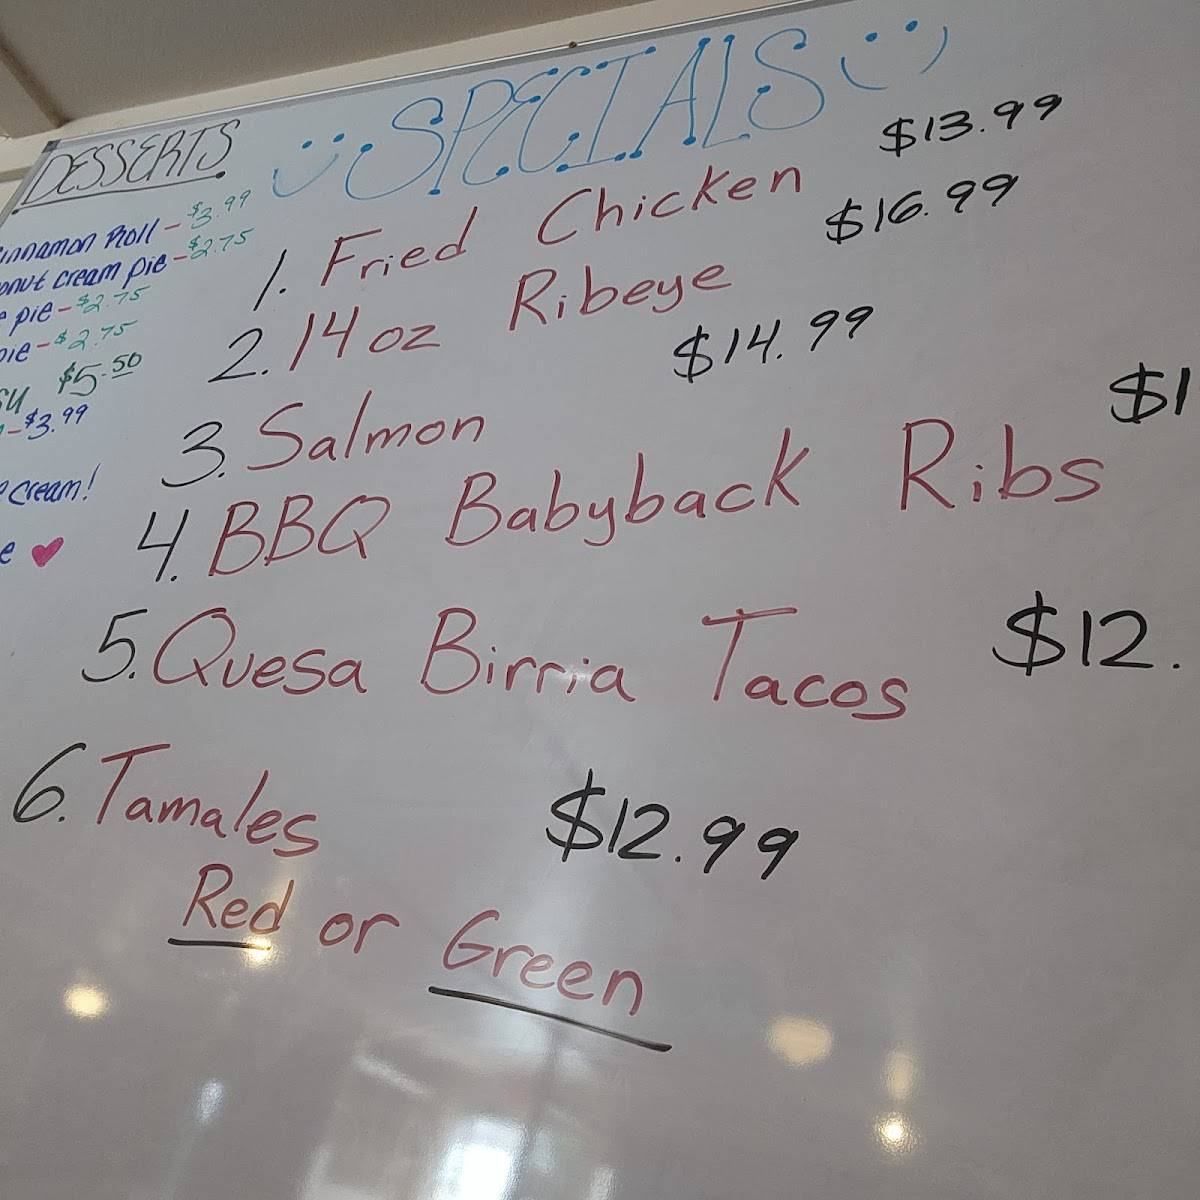 DESSERTS
innamon Roll - $3.99
onut cream pie - $2.75
pie - $2.75
pie - $2.75
$5.50
- $3.99
cream!
e ♥
SPECIALS
1. Fried Chicken $13.99
2. 14 oz Ribeye $16.99
3. Salmon $14.99
4. BBQ Babyback Ribs $1
5. Quesa Birria Tacos $12.
6. Tamales $12.99
Red or Green